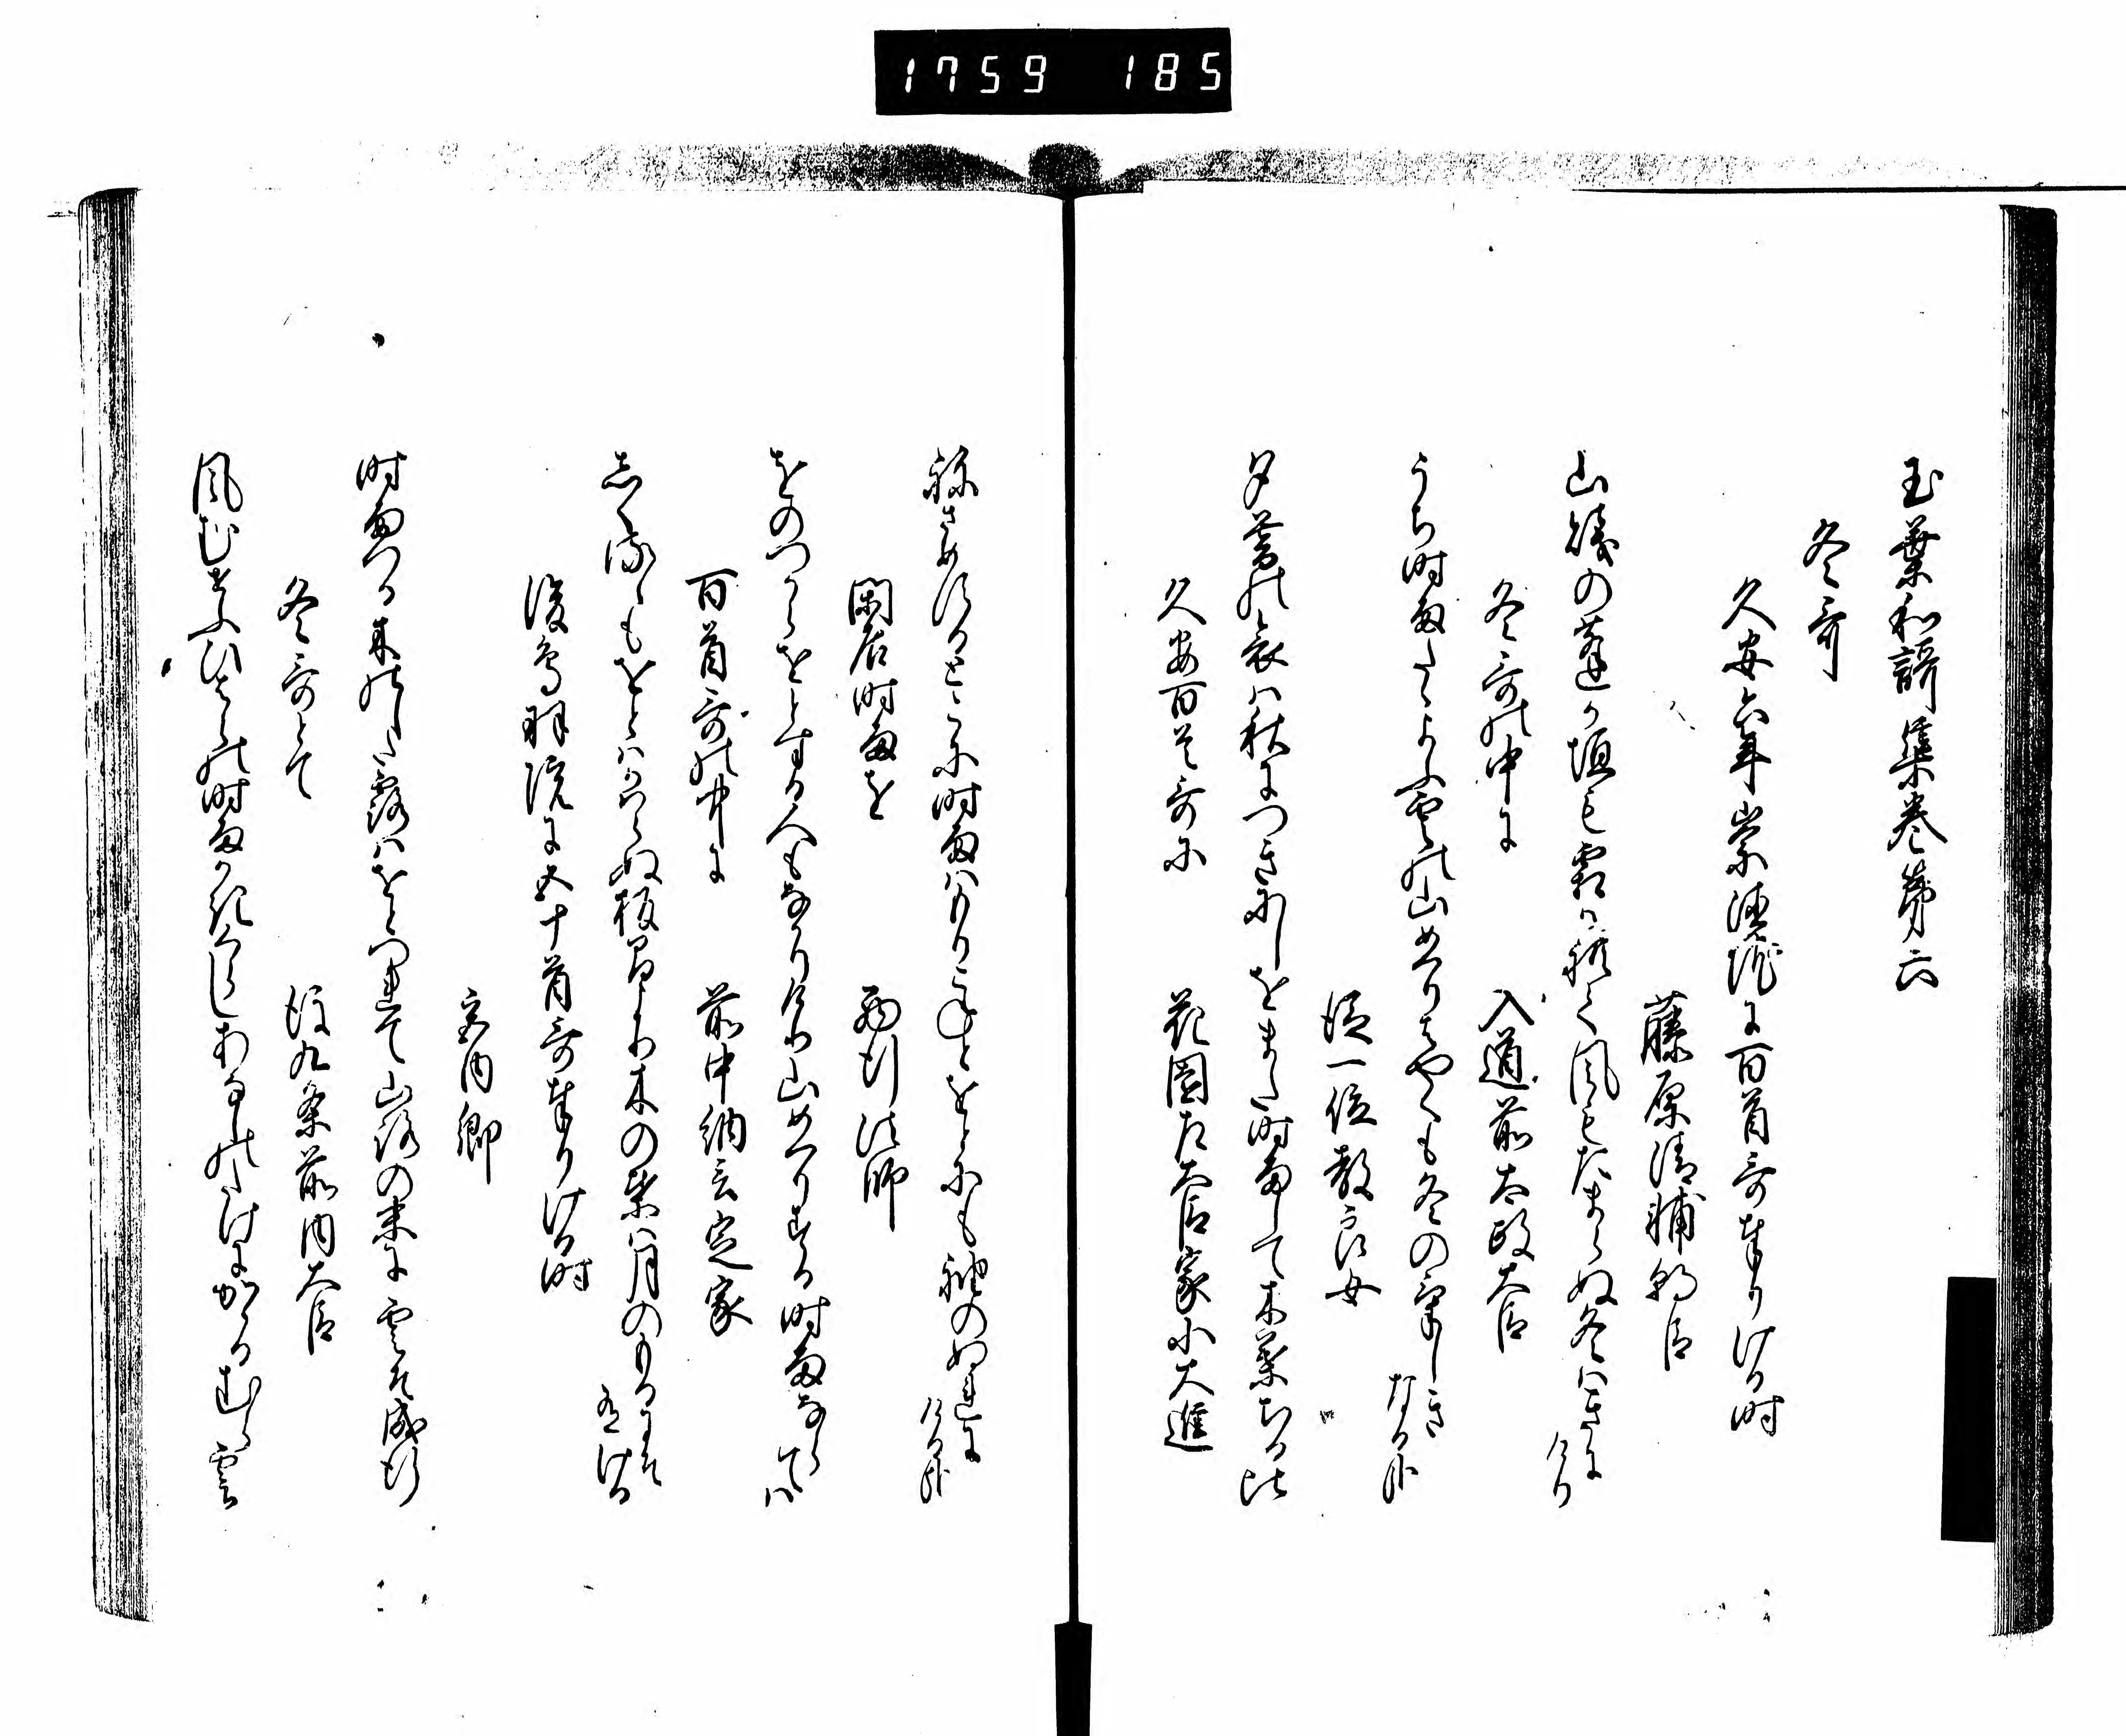 1759 185
玉葉和謌集巻第六
冬哥
久安六年崇徳院に百首哥奉りける時
藤原清輔朝臣
山賤の蓬か垣も霜かれて風もたまらぬ冬はきに
けり
冬哥の中に
入道前太政大臣
うち時雨たゝよふ雲の山めくりはやくも冬のけしき
なる哉
従一位教良女
夕暮の哀は秋につきにしをまた時雨して木葉ちる比
久安百首哥に
花園左大臣家小大進
ねさめする
時雨はもりこねとをとにも袖のぬれに
ける哉
閑居時雨を
西行法師
をのつからをとする人もなかりけり山めくりする時雨ならては
百首哥の中に
前中納言定家
しくれゝもをとはかはらぬ板まより木の葉は月のもるにそ
有ける
後鳥羽院に五十首哥奉りける時
宮内卿
時雨つる木のした露はをとつれて山路の末に雲そ成行
冬哥とて
後九条前内大臣
風さむみ
時雨
かゝるむら雲